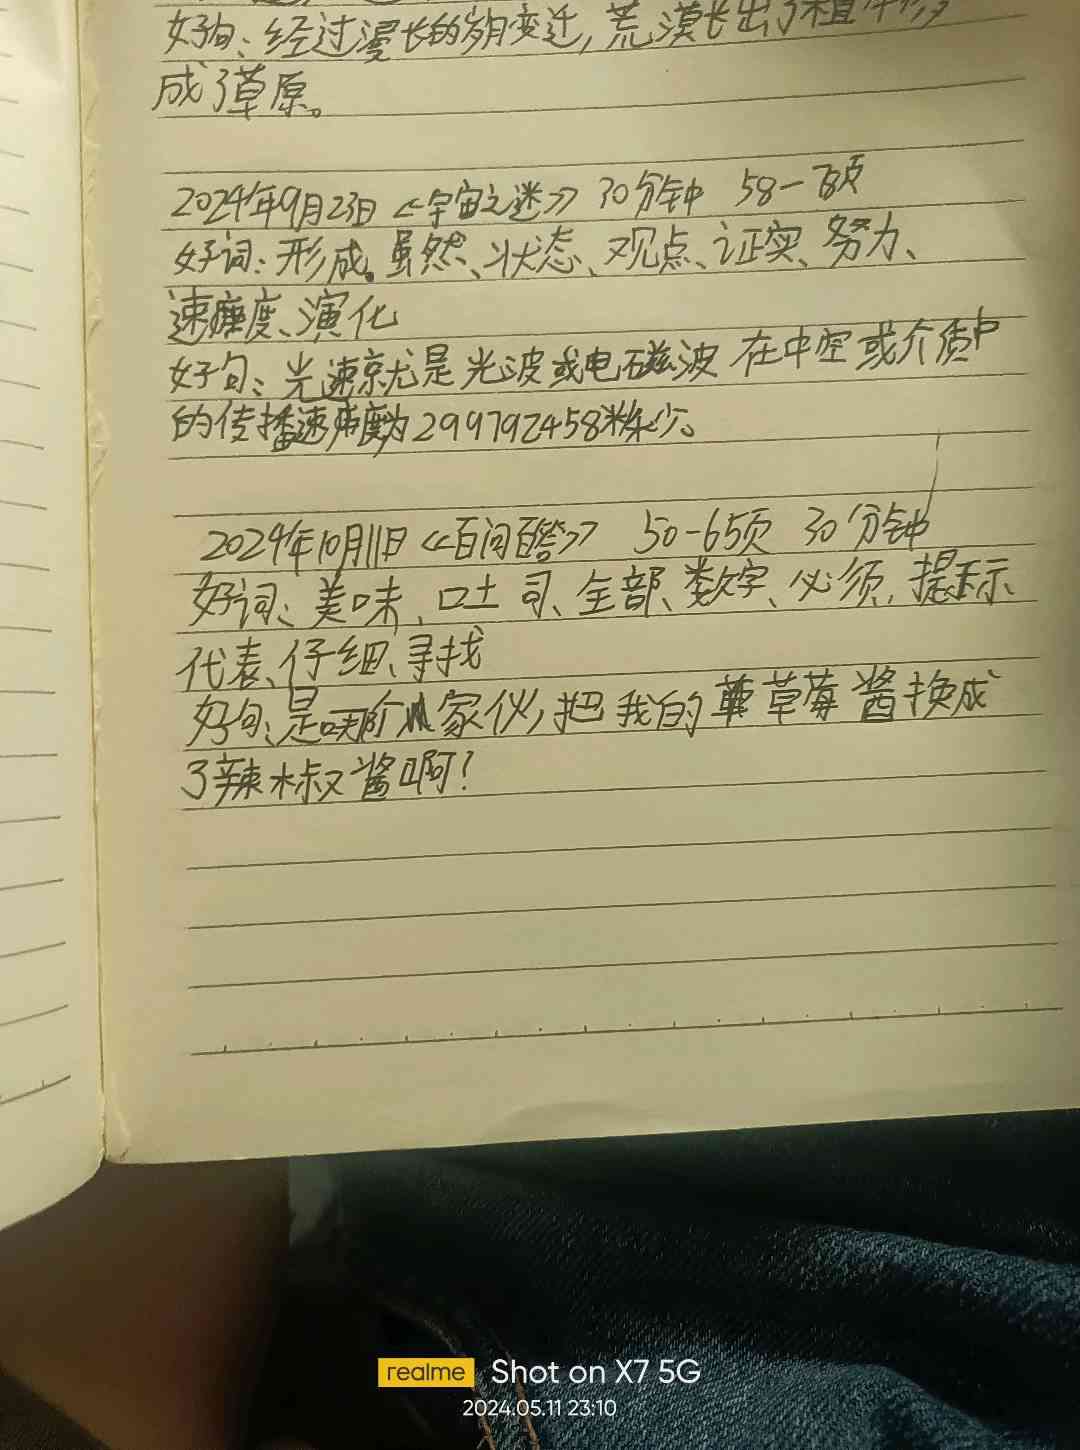 好句：经过漫长的岁月变迁，荒漠长出了植
成了草原。
2024年9月23日 《宇宙之迷》 30分钟 58-78页
好词：形成。虽然、状态、观点、证实、努力、
速度、演化
好句：光速就是光波或电磁波在中空或介质中
的传播速度为299792458米秒。
2024年10月11日《百问百答》 50-65页 30分钟
好词：美味、吐司、全部、数字、必须、提示、
代表、仔细、寻找
好句：是哪个家伙，把我的草莓酱换成
了辣椒酱啊？
realme Shot on X7 5G
2024.05.11 23:10